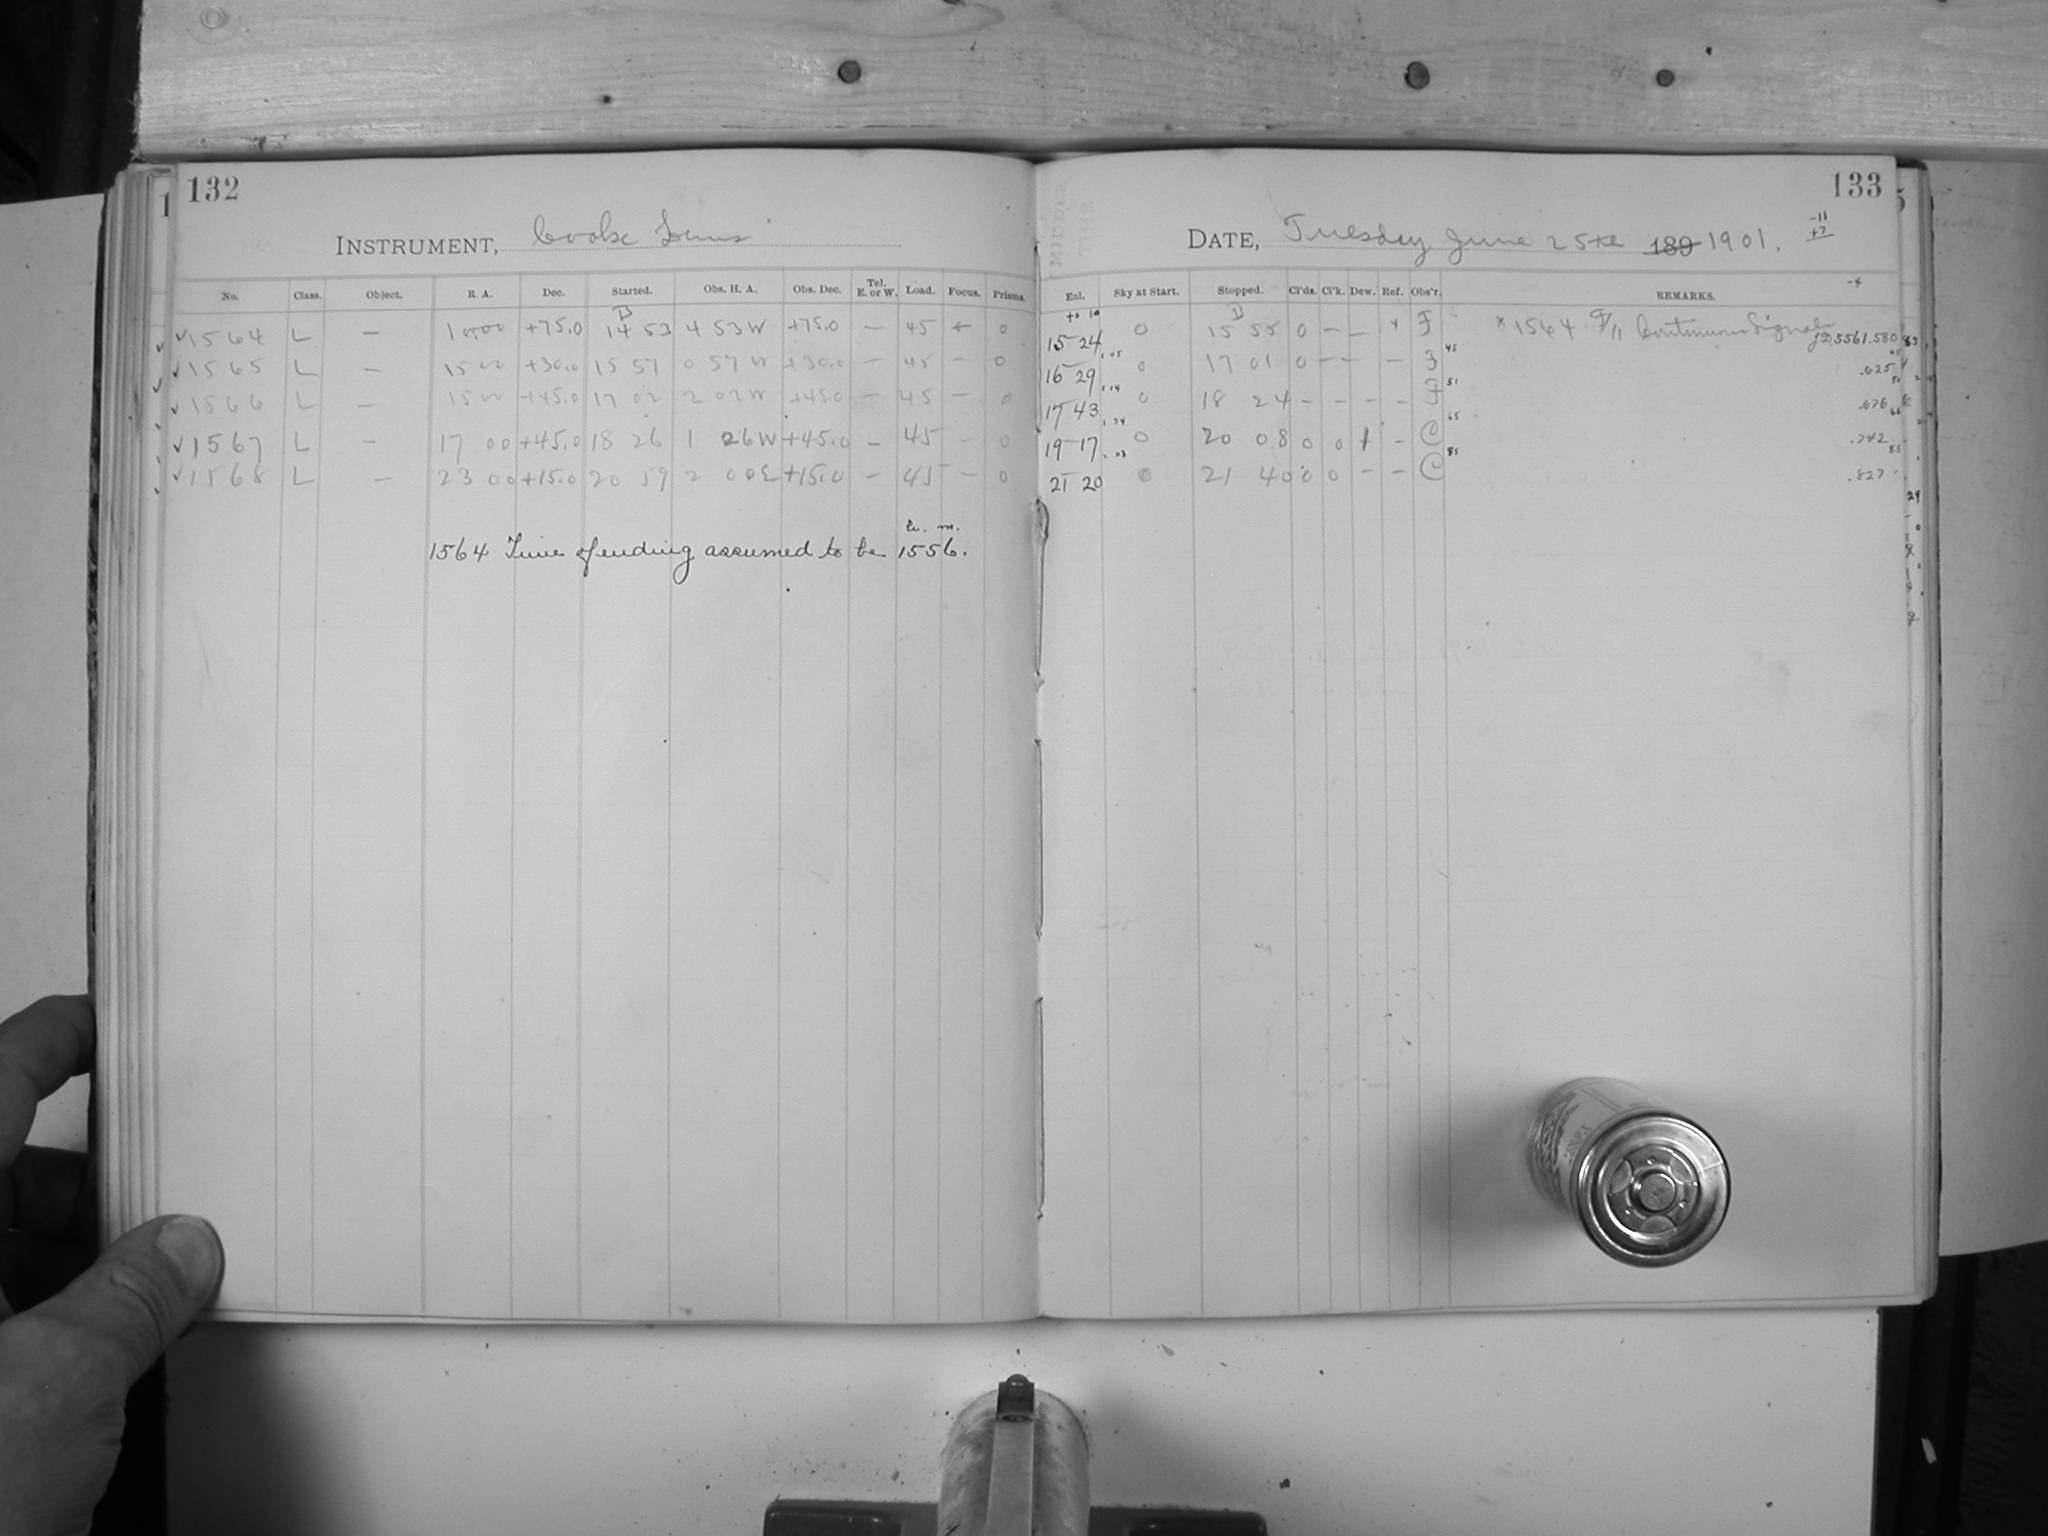 132
INSTRUMENT, Cooke Lens
No. Class. Object. R. A. Dec. Started. Obs. H. A. Obs. Dec. Tel. E. or W. Load. Focus. Prisms.
√1564 L — 10 00 +75.0 14 53 4 53 W +75.0 — 45 — 0
√1565 L — 15 00 +30.0 15 57 0 57 W +30.0 — 45 — 0
√1566 L — 15 00 +45.0 17 02 2 02 W +45.0 — 45 — 0
√1567 L — 17 00 +45.0 18 26 1 26 W +45.0 — 45 — 0
√1568 L — 23 00 +15.0 20 59 2 00 E +15.0 — 45 — 0
h. m.
1564 Time of ending assumed to be 1556.
133
DATE, Tuesday June 25th 189 1901.
-11
+7
-4
Enl. Sky at Start. Stopped. Cl'ds. Cl'k. Dew. Ref. Obs'r. REMARKS.
15 24 0 15 55 0 — — x F x 1564 Continuous Signal JD 5561.580
16 29 0 17 01 0 — — — F .625
17 43 0 18 24 — — — — F .676
19 17 0 20 08 0 0 1 — C .742
21 20 0 21 40 0 0 — — C .827